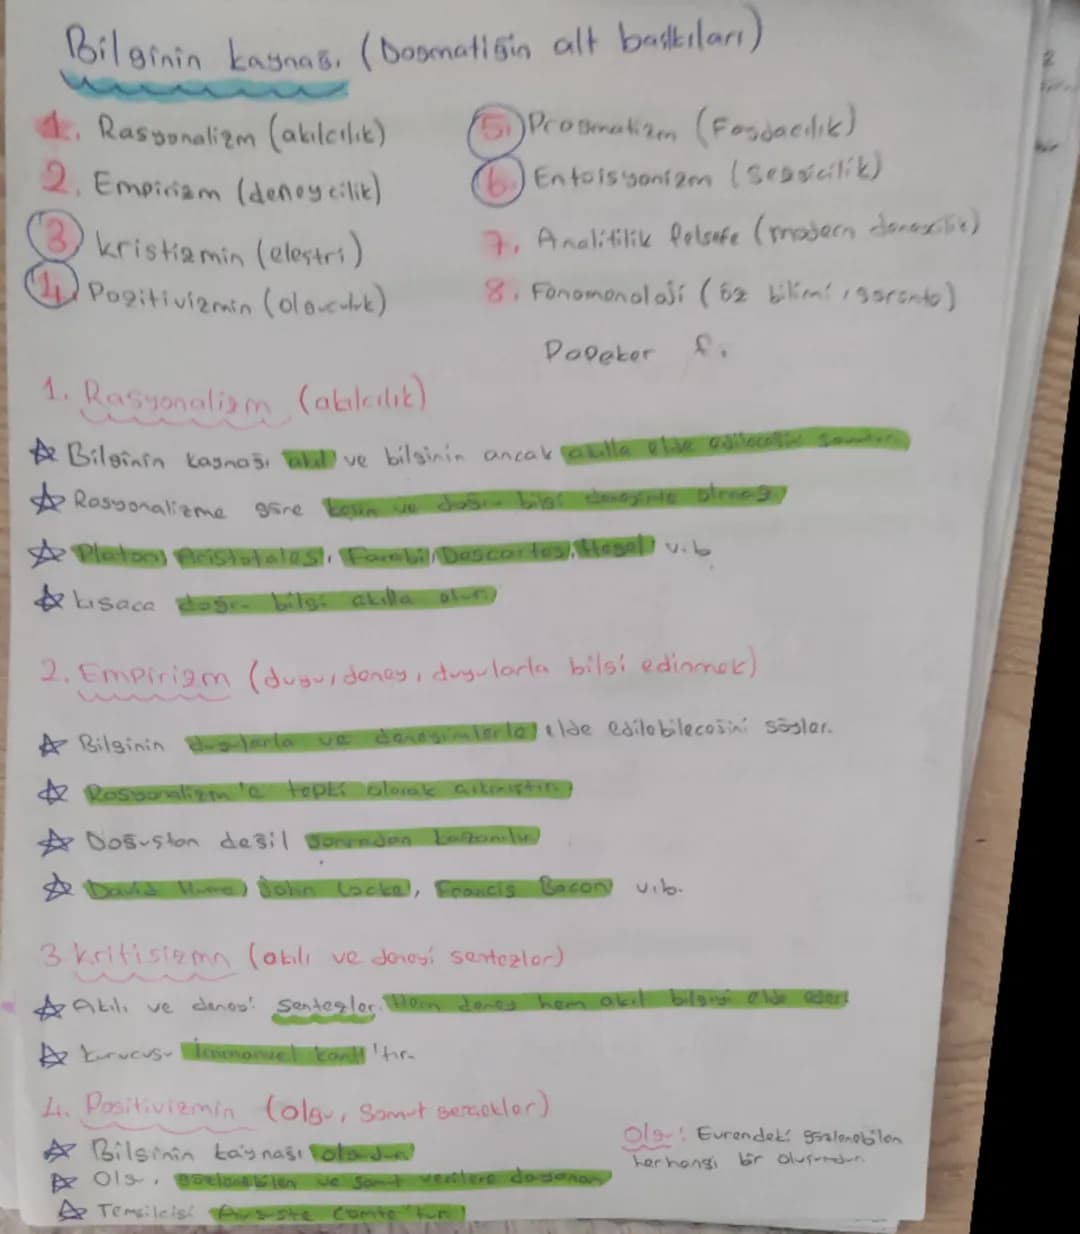 Bilginin kaynağı (Dogmatiğin alt baskıları)
1. Rasyonalizm (akılcılık)
2. Empirizm (deneycilik)
3 kristizmin (eleştri)
4. Pozitivizmin (olguculuk)
5. Pragmatizm (Faydacılık)
6. Entüisyonizm (Sezgicilik)
7. Analitilik felsefe (modern
8. Fonomonoloji (öz bilimi,
f.
1. Rasyonalizm (akılcılık)
Bilginin kaynağı akıl ve bilginin ancak akılla elde edileceğini
Rasyonalizme göre kesin ve doğru bilgi
Platon, Aristotales, Farabi, Descartes, Hegel v.b
kısaca doğru bilgi akılla olur.
2. Empirizm (duyu, deney, duyularla bilgi edinmek)
Bilginin duyularla ve deneyimlerle elde edilebileceğini söyler.
Rasyonalizm'e tepki olarak çıkmıştır.
Doğuştan değil sonradan kazanılır
David Hume, John Locke, Francis Bacon v.b.
3 kritisizmn (akılı ve deneyi sentezler)
Akılı ve deneyi sentezler. Hem deney hem akıl bilgiyi elde eder.
kurucusu Immanuel Kant'tır.
4. Pozitivizmin (olgu, somut gerçekler)
Bilginin kaynağı olgudur
Olgu, gözlenebilen ve somut verilere dayanan
Temsilcisi Auguste Comte'tur.
Olgu: Evrendeki gözlenebilen
herhangi bir oluşumdur.